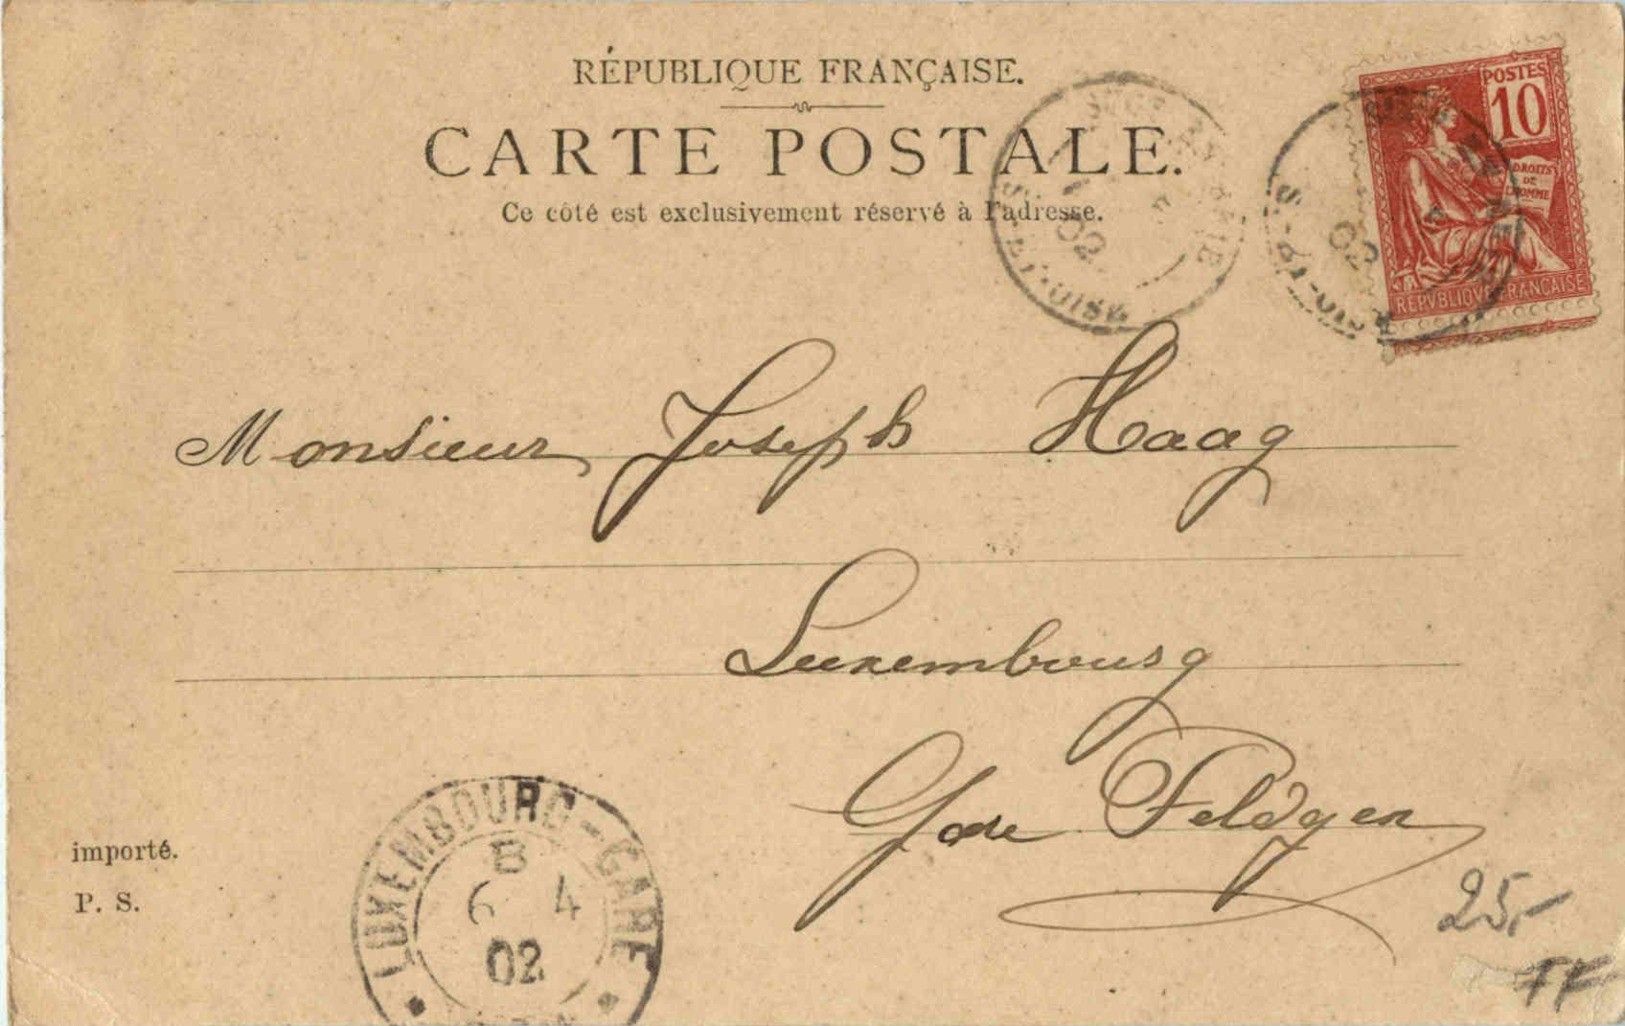 RÉPUBLIQUE FRANÇAISE.
CARTE POSTALE.
Ce côté est exclusivement réservé à l'adresse.
POSTES
10
DROITS
DE
L'HOMME
REPVBLIQVE FRANÇAISE
02
02
Monsieur Joseph Haag
Luxembourg
Gare Feldgen
importé.
P. S.
LUXEMBOURG-GARE
B
6 4
02
25,-
TF